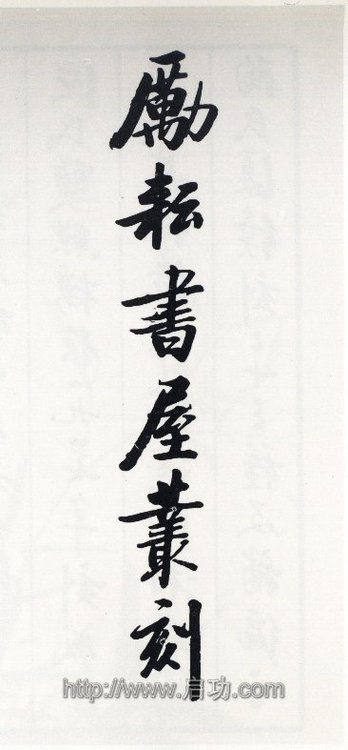 勵耘書屋叢刻
http://www.启功.com